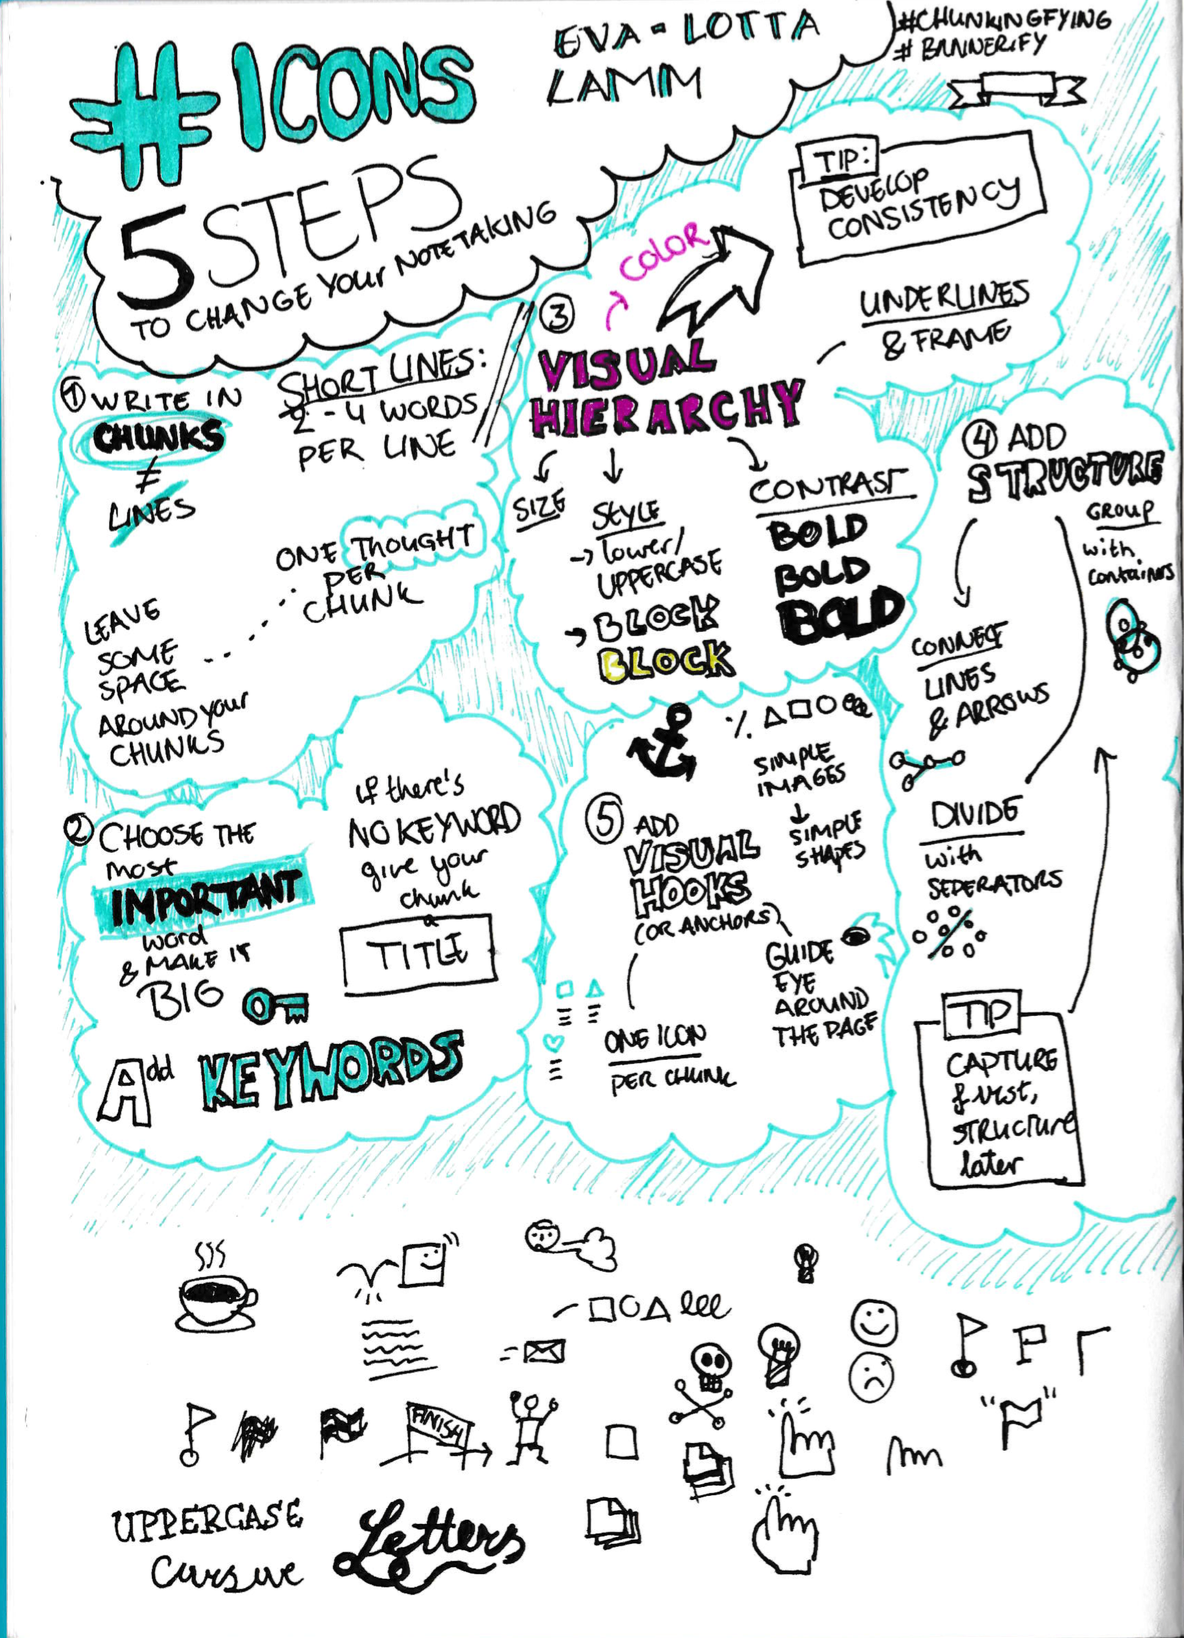 #ICONS
EVA-LOTTA
LAMM
#CHUNKINGFYING
# BANNERIFY
5 STEPS
TO CHANGE YOUR NOTETAKING
① WRITE IN
CHUNKS
≠
LINES
SHORT LINES:
2 - 4 WORDS
PER LINE
ONE THOUGHT
PER
CHUNK
LEAVE
SOME
SPACE
AROUND your
CHUNKS
② CHOOSE THE
most
IMPORTANT
word
& MAKE IT
BIG
if there's
NO KEYWORD
give your
chunk
a
TITLE
Add KEYWORDS
③
VISUAL
HIERARCHY
COLOR
TIP:
DEVELOP
CONSISTENCY
UNDERLINES
& FRAME
SIZE
STYLE
→ lower/
UPPERCASE
→ BLOCK
BLOCK
CONTRAST
BOLD
BOLD
BOLD
④ ADD
STRUCTURE
GROUP
with
containers
CONNECT
LINES
& ARROWS
DIVIDE
with
SEPERATORS
TIP
CAPTURE
first,
STRUCTURE
later
⑤ ADD
VISUAL
HOOKS
(OR ANCHORS)
SIMPLE
IMAGES
↓
SIMPLE
SHAPES
GUIDE
EYE
AROUND
THE PAGE
ONE ICON
PER CHUNK
FINISH
UPPERCASE
Cursive
Letters